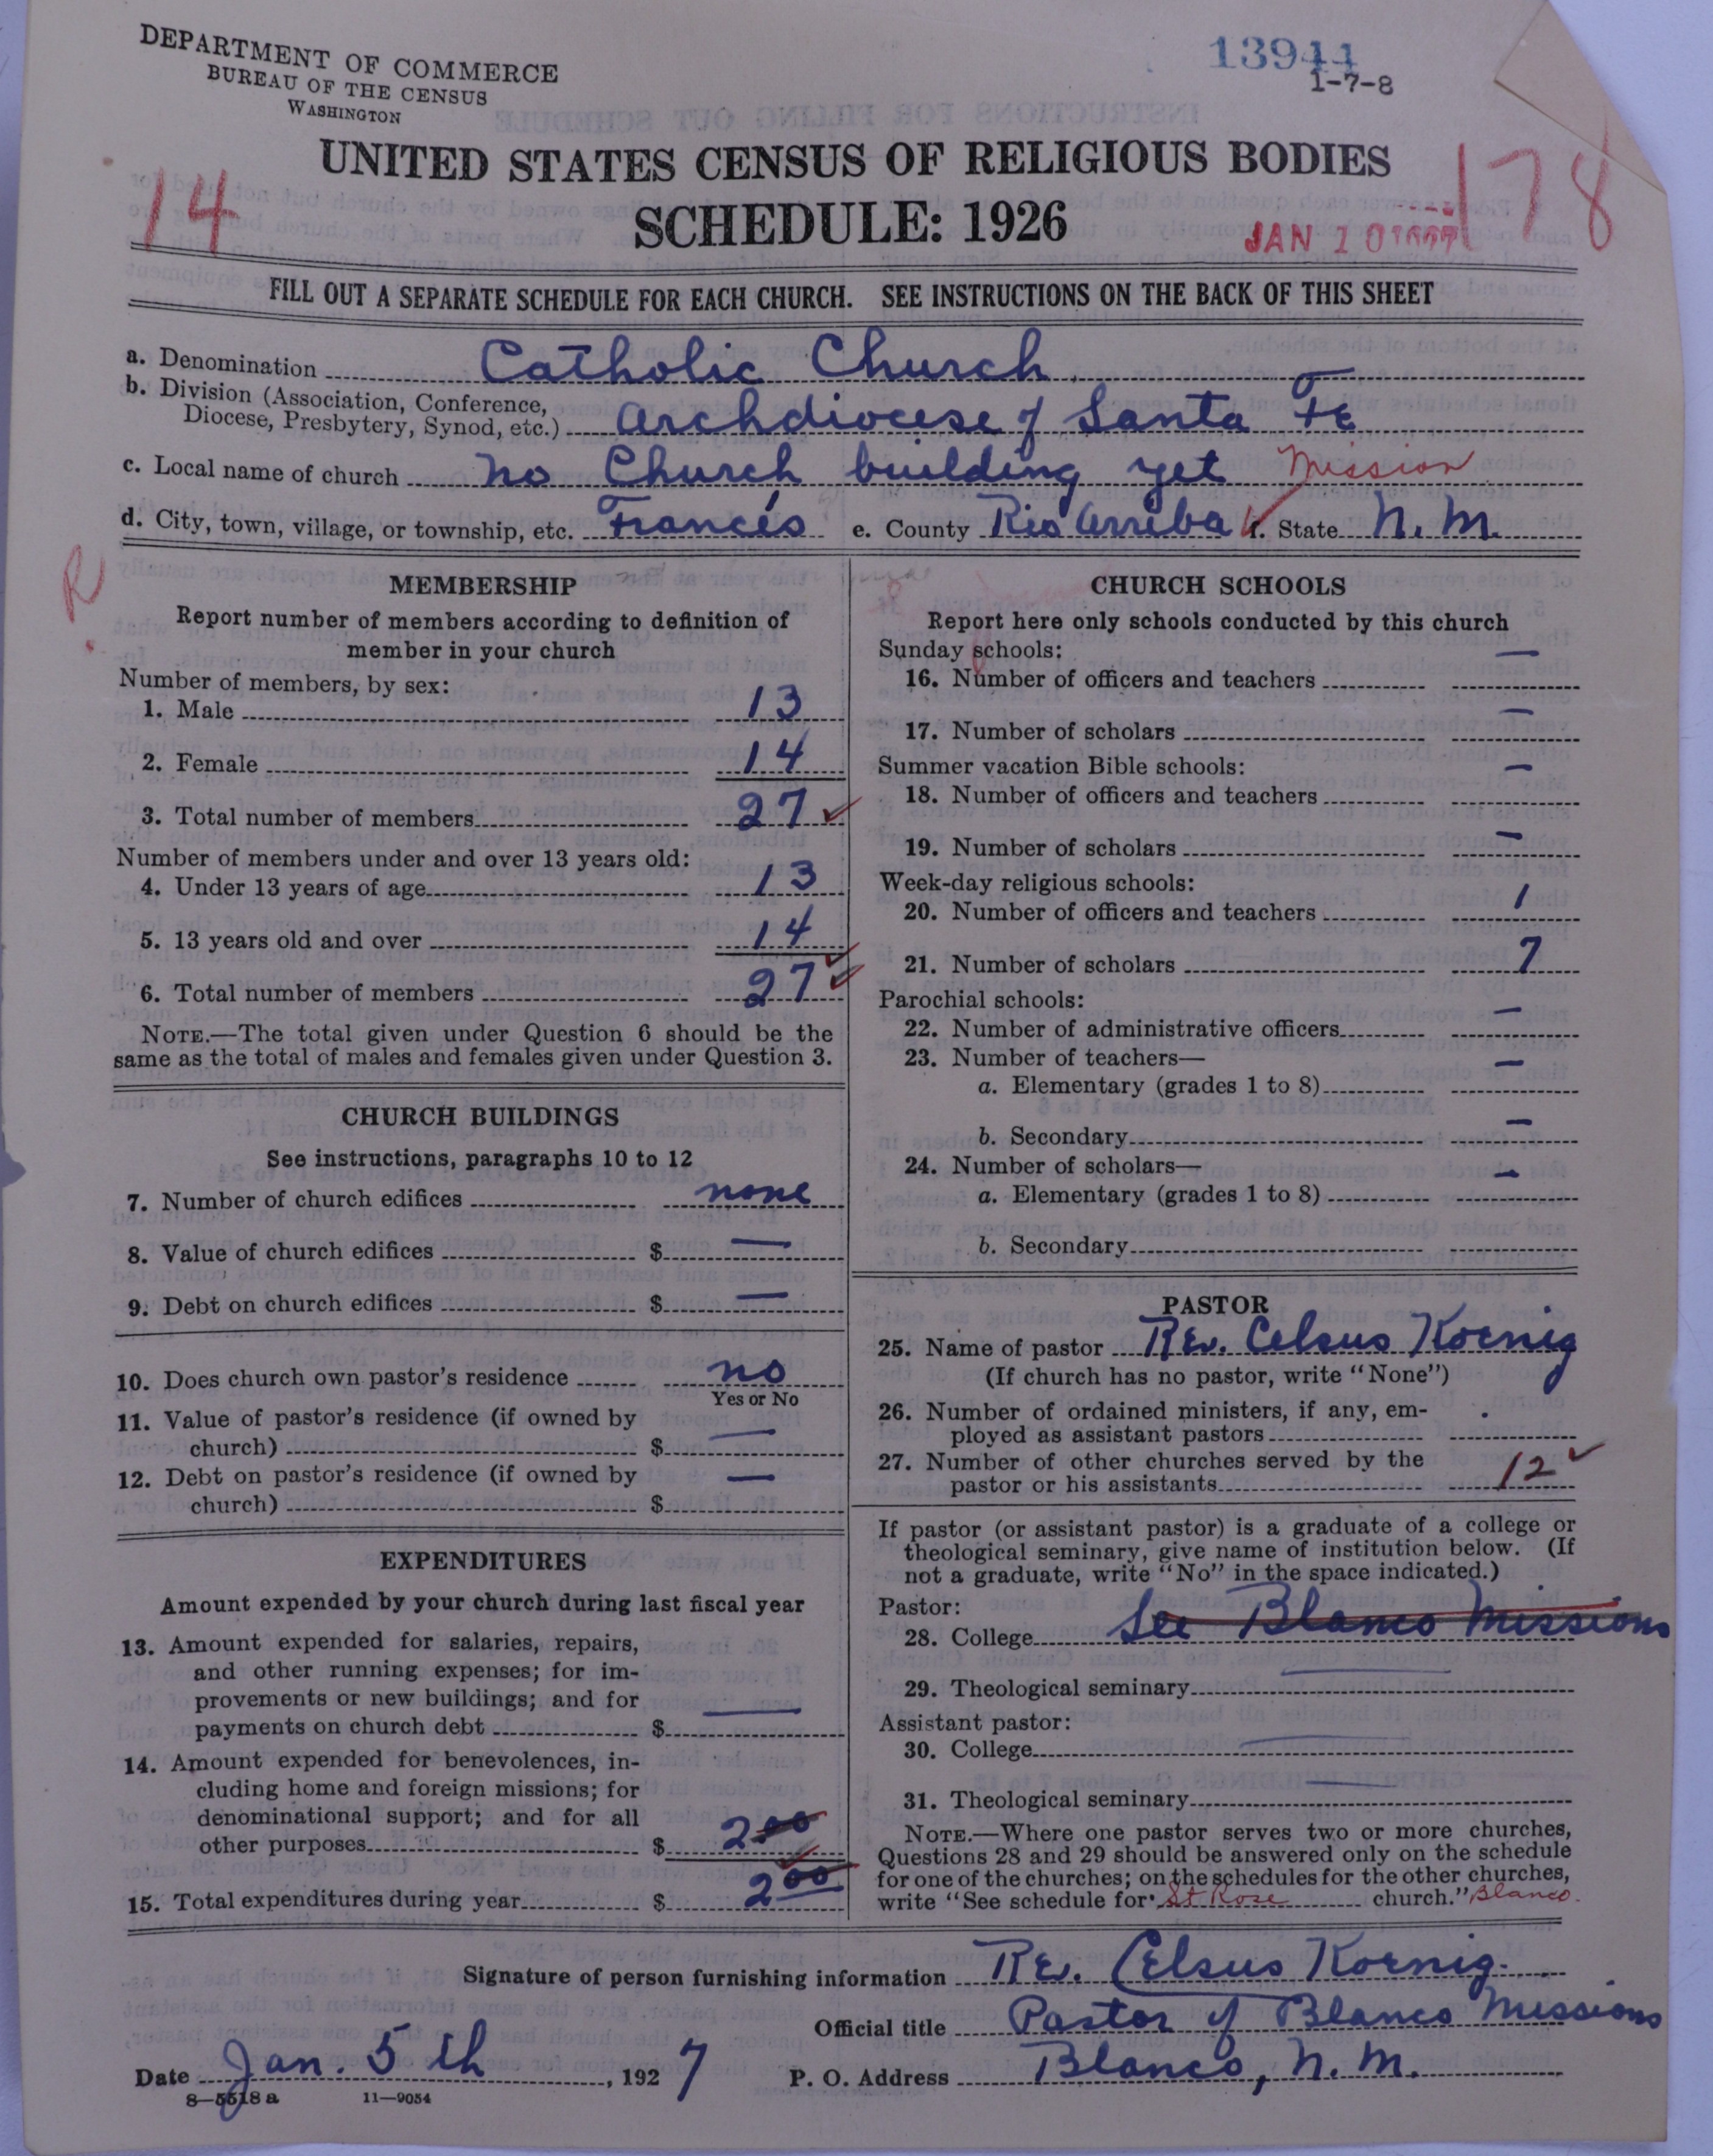 DEPARTMENT OF COMMERCE
BUREAU OF THE CENSUS
WASHINGTON
13944
1-7-8
UNITED STATES CENSUS OF RELIGIOUS BODIES
14
178
SCHEDULE: 1926
JAN 10
FILL OUT A SEPARATE SCHEDULE FOR EACH CHURCH. SEE INSTRUCTIONS ON THE BACK OF THIS SHEET
a. Denomination Catholic Church
b. Division (Association, Conference,
Diocese, Presbytery, Synod, etc.) Archdiocese of Santa Fe
c. Local name of church no Church building yet Mission
d. City, town, village, or township, etc. Francés e. County Rio Arriba f. State N. M.
R
MEMBERSHIP
Report number of members according to definition of
member in your church
Number of members, by sex:
1. Male 13
2. Female 14
3. Total number of members 27
Number of members under and over 13 years old:
4. Under 13 years of age 13
5. 13 years old and over 14
6. Total number of members 27
NOTE.—The total given under Question 6 should be the
same as the total of males and females given under Question 3.
CHURCH BUILDINGS
See instructions, paragraphs 10 to 12
7. Number of church edifices none
8. Value of church edifices $ —
9. Debt on church edifices $ —
10. Does church own pastor's residence no
Yes or No
11. Value of pastor's residence (if owned by
church) $ —
12. Debt on pastor's residence (if owned by
church) $ —
EXPENDITURES
Amount expended by your church during last fiscal year
13. Amount expended for salaries, repairs,
and other running expenses; for im-
provements or new buildings; and for
payments on church debt $ —
14. Amount expended for benevolences, in-
cluding home and foreign missions; for
denominational support; and for all
other purposes $ 2.00
15. Total expenditures during year $ 2 00
CHURCH SCHOOLS
Report here only schools conducted by this church
Sunday schools:
16. Number of officers and teachers —
17. Number of scholars —
Summer vacation Bible schools:
18. Number of officers and teachers —
19. Number of scholars —
Week-day religious schools:
20. Number of officers and teachers 1
21. Number of scholars 7
Parochial schools:
22. Number of administrative officers —
23. Number of teachers—
a. Elementary (grades 1 to 8) —
b. Secondary —
24. Number of scholars—
a. Elementary (grades 1 to 8) —
b. Secondary
PASTOR
25. Name of pastor Rev. Celsus Koenig
(If church has no pastor, write "None")
26. Number of ordained ministers, if any, em-
ployed as assistant pastors
27. Number of other churches served by the
pastor or his assistants 12
If pastor (or assistant pastor) is a graduate of a college or
theological seminary, give name of institution below. (If
not a graduate, write "No" in the space indicated.)
Pastor:
28. College See Blanco Missions
29. Theological seminary —
Assistant pastor:
30. College —
31. Theological seminary —
NOTE.—Where one pastor serves two or more churches,
Questions 28 and 29 should be answered only on the schedule
for one of the churches; on the schedules for the other churches,
write "See schedule for St Rose church." Blanco.
Signature of person furnishing information Rev. Celsus Koenig.
Official title Pastor of Blanco Missions
Date Jan. 5 th, 1927 P. O. Address Blanco, N. M.
8—5518 a 11—9054